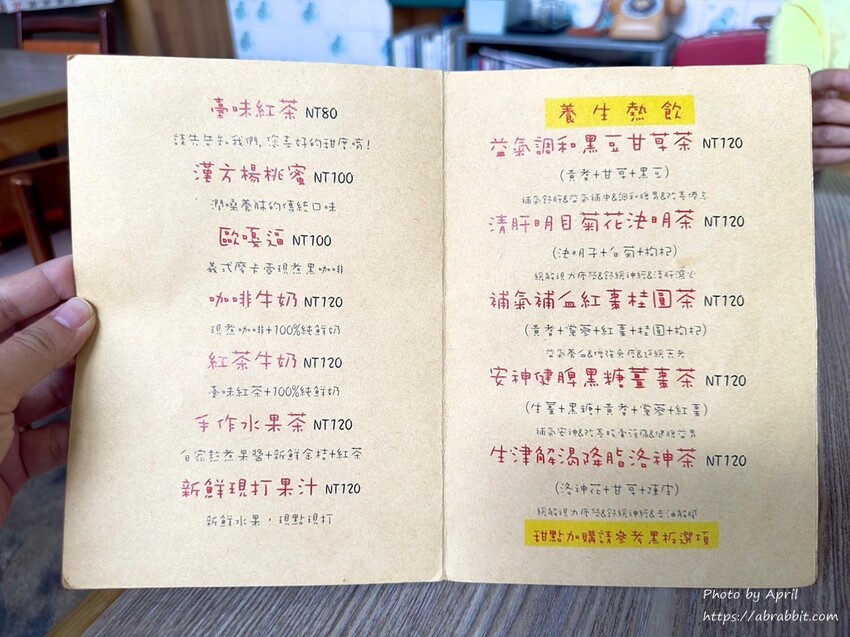 臺味紅茶 NT80
請先告知我們,您喜好的甜度唷!
漢方楊桃蜜 NT100
潤嗓養肺的傳統口味
歐嘎逗 NT100
義式摩卡壺現煮黑咖啡
咖啡牛奶 NT120
現煮咖啡+100%純鮮奶
紅茶牛奶 NT120
臺味紅茶+100%純鮮奶
手作水果茶 NT120
自家熬煮果醬+新鮮金桔+紅茶
新鮮現打果汁 NT120
新鮮水果,現點現打
養生熱飲
益氣調和黑豆甘草茶 NT120
(黃耆+甘草+黑豆)
補氣舒肝&益氣補中&調和脾胃&改善倦怠
清肝明目菊花決明茶 NT120
(決明子+白菊+枸杞)
緩解視力疲勞&舒緩神經&清肝瀉火
補氣補血紅棗桂圓茶 NT120
(黃耆+黨蔘+紅棗+桂圓+枸杞)
益氣養血&增強免疫&
安神健脾黑糖薑棗茶 NT120
(生薑+黑糖+黃耆+黨蔘+紅棗)
補氣安神&改善&健脾益胃
生津解渴降脂洛神茶 NT120
(洛神花+甘草+陳皮)
緩解視力疲勞&舒緩神經&去油解膩
甜點加購請參考黑板選項
Photo by April
https://abrabbit.com